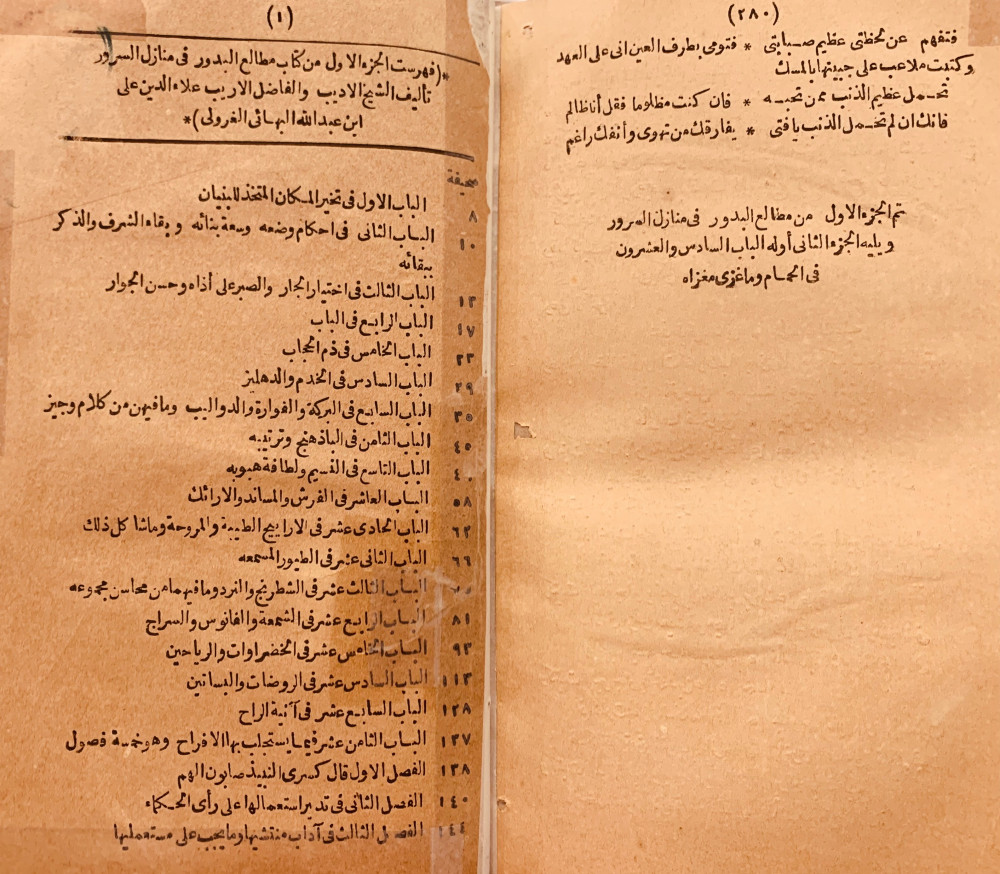 (٢٨٠)
فتفهم عن لحظتى عظيم صبابتى * فتومى بطرف العين انى على العهد
وكتبت ملاعب على جبينها بالمسك
تحمل عظيم الذنب ممن تحبه * فان كنت مظلوما فقل أنا ظالم
فانك ان لم تحمل الذنب يا فتى * يفارقك من تهوى وأنفك راغم
تم الجزء الاول من مطالع البدور فى منازل السرور
ويليه الجزء الثانى أوله الباب السادس والعشرون
فى الحمام وما غزى مغزاه
(١)
*(فهرست الجزء الاول من كتاب مطالع البدور فى منازل السرور
تأليف الشيخ الاديب والفاضل الاريب علاء الدين على
ابن عبد الله البهائى الغزولى)*
صحيفة
٨ الباب الاول فى تخير المكان المتخذ للبنيان
١٠ الباب الثانى فى احكام وضعه وسعة بنائه وبقاء الشرف والذكر
ببقائه
١٣ الباب الثالث فى اختيار الجار والصبر على أذاه وحسن الجوار
١٧ الباب الرابع فى الباب
٢٣ الباب الخامس فى ذم الحجاب
٢٩ الباب السادس فى الخدم والدهليز
٣٥ الباب السابع فى البركة والفوارة والدواليب وما فيهن من كلام وجيز
٤٥ الباب الثامن فى الباذهنج وترتيبه
الباب التاسع فى النسيم ولطافة هبوبه
٥٨ الباب العاشر فى الفرش والمساند والارائك
٦٢ الباب الحادى عشر فى الارايح الطيبة والمروحة وما شا كل ذلك
٦٦ الباب الثانى عشر فى الطيور المسمعه
الباب الثالث عشر فى الشطرنج والنرد وما فيهما من محاسن مجموعه
٨١ الباب الرابع عشر فى الشمعة والفانوس والسراج
٩٣ الباب الخامس عشر فى الخضراوات والرياحين
١١٣ الباب السادس عشر فى الروضات والبساتين
١٢٨ الباب السابع عشر فى آنية الراح
١٣٧ الباب الثامن عشر فيما يستجلب بها الافراح وهو خمسة فصول
١٣٨ الفصل الاول قال كسرى النبيذ صابون الهم
١٤٠ الفصل الثانى فى تدبير استعمالها على رأى الحكماء
١٤٤ الفصل الثالث فى آداب منتشيها وما يجب على مستعمليها